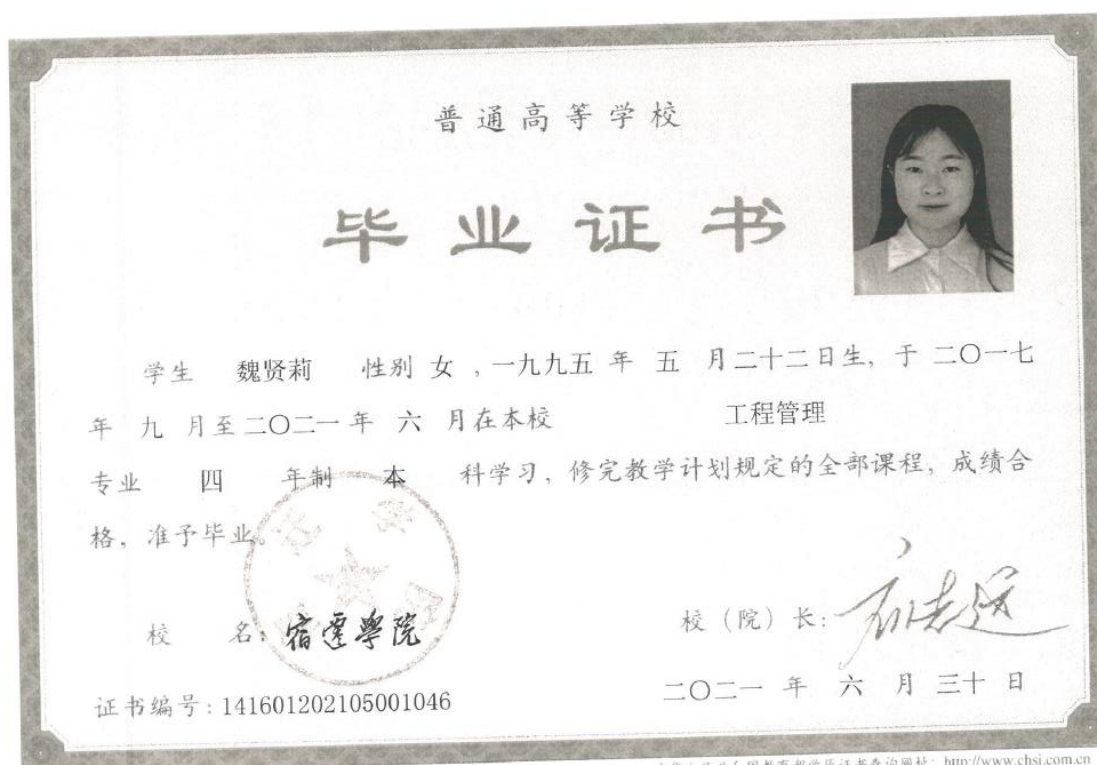 普通高等学校
毕业证书
学生 魏贤莉 性别 女 , 一九九五 年 五 月二十二日生, 于 二〇一七
年 九 月至二〇二一年 六 月在本校 工程管理
专业 四 年制 本 科学习, 修完教学计划规定的全部课程, 成绩合
格, 准予毕业。
校 名: 宿迁學院
校（院）长:
证书编号: 141601202105001046
二〇二一 年 六 月 三十 日
育部学历证书查询网址: http://www.chsi.com.cn